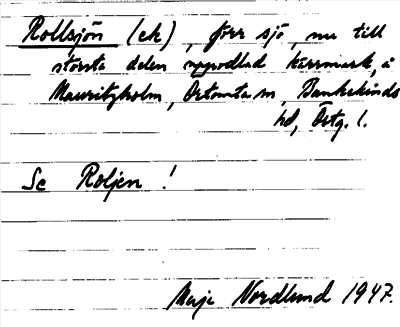 Rollsjön (ek), förr sjö, nu till
största delen uppodlad kärrmark, å
Mauritzholm, Örtomta sn, Bankekinds
hd, Östg. l.
Se Roljen !
Maja Nordlund 1947.